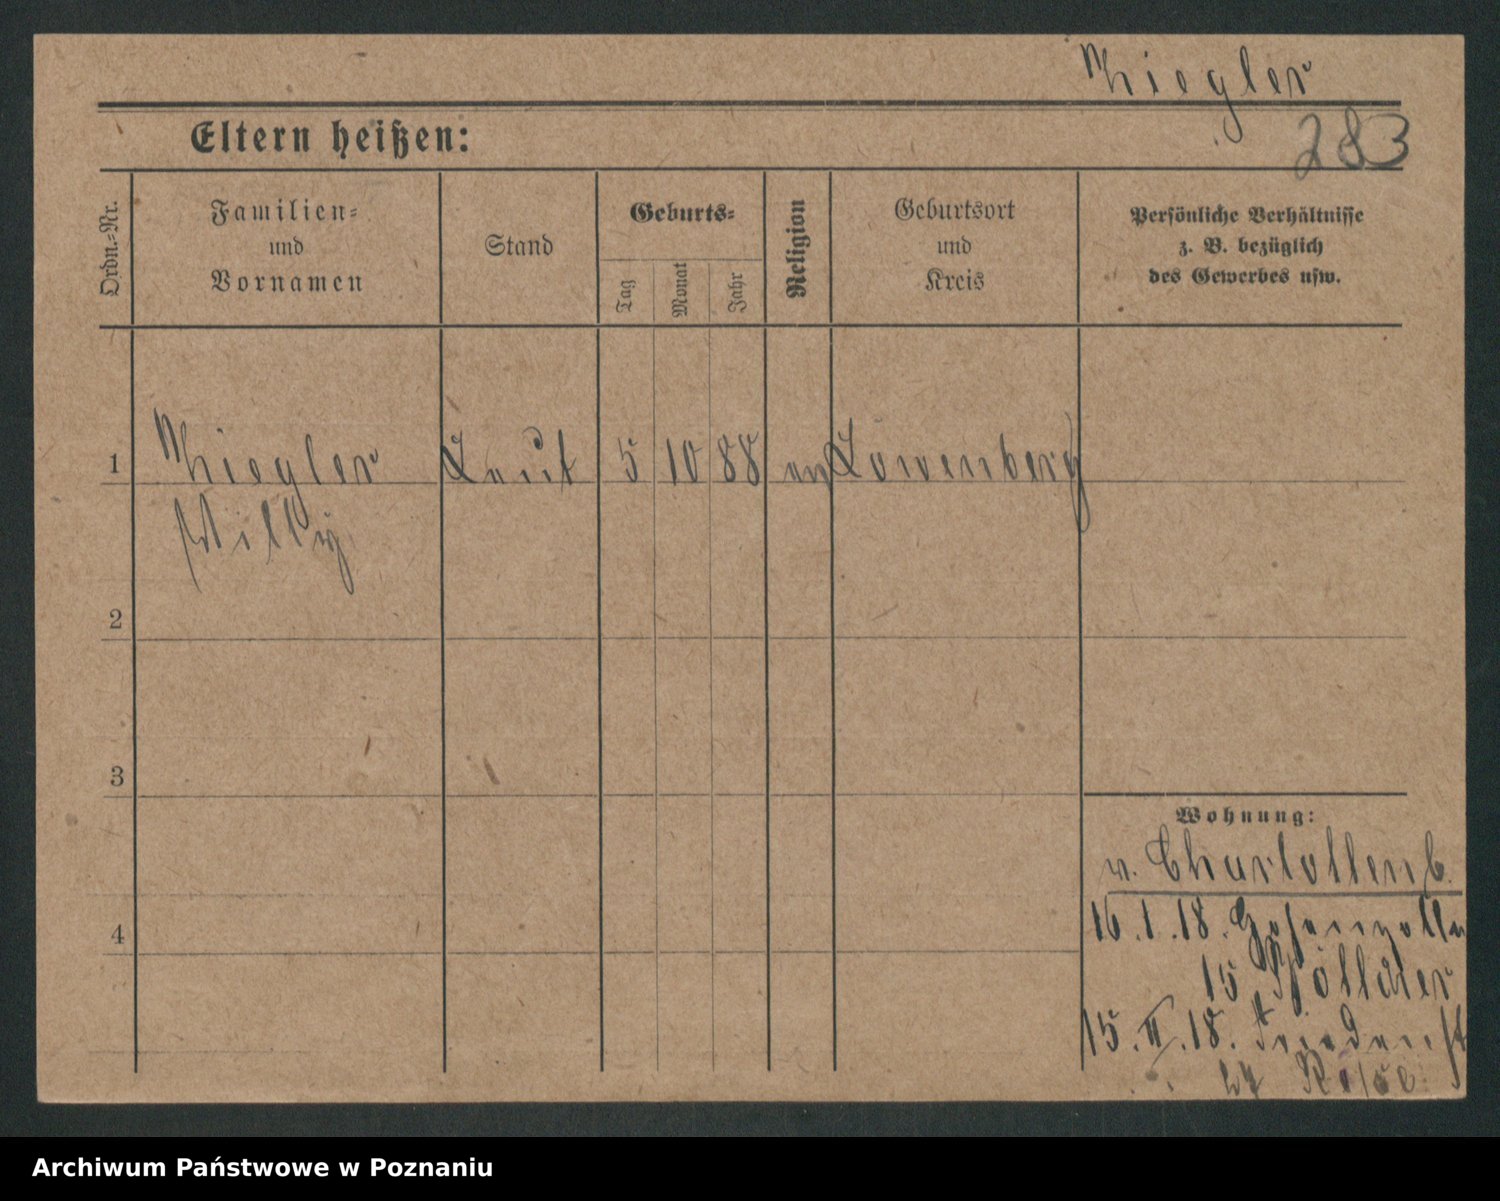 Ziegler
283
Eltern heißen:
Ordn.-Nr.
Familien- und Vornamen
Stand
Geburts-
Tag
Monat
Jahr
Religion
Geburtsort und Kreis
Persönliche Verhältnisse z. B. bezüglich des Gewerbes usw.
1
Ziegler Leut 5 10 88 ev Löwenberg
Willy
2
3
Wohnung:
v. Charlottenb.
16.1.18. Hohenzoller
4
15
15.II.18. Friedenst
27
Archiwum Państwowe w Poznaniu